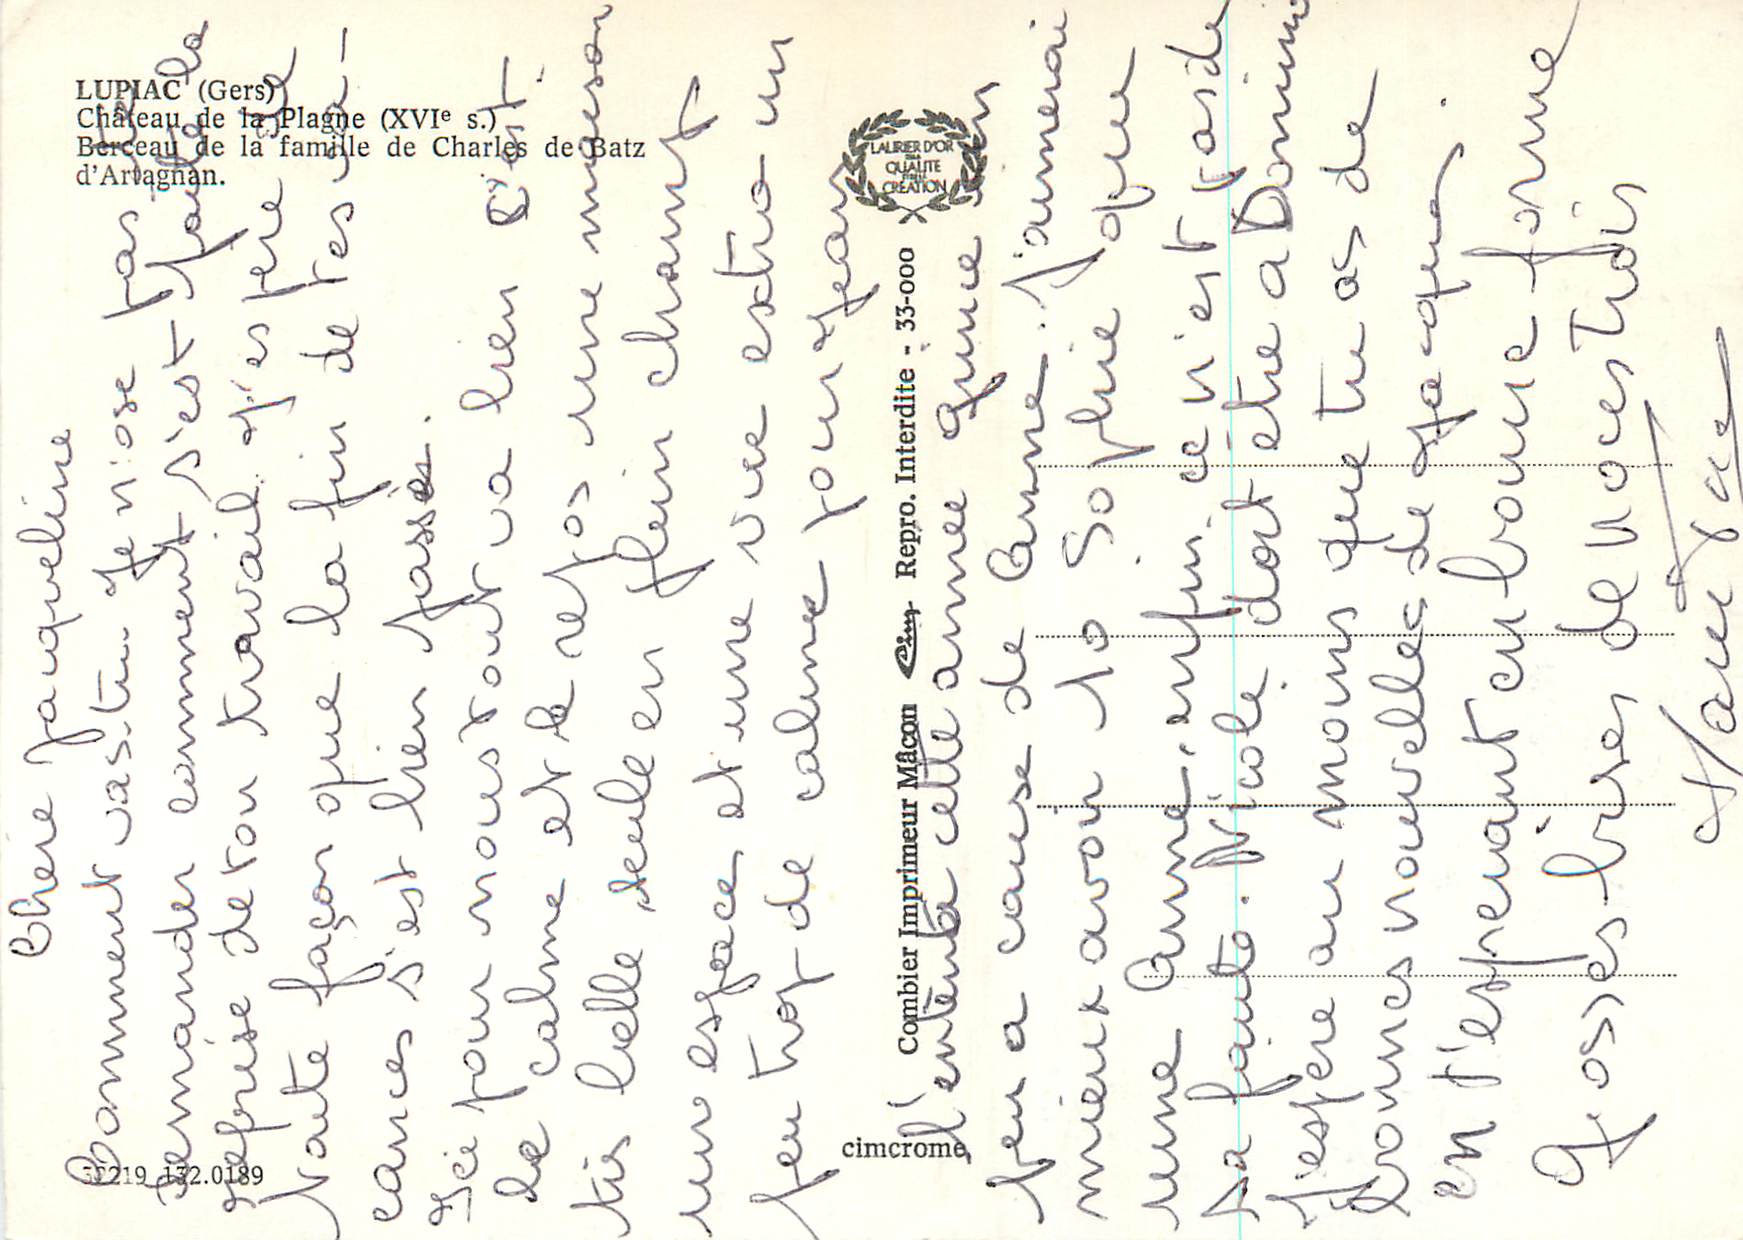 LUPIAC (Gers)
Château de la Plagne (XVIe s.)
Berceau de la famille de Charles de Batz
d'Artagnan.
LAURIER D'OR
QUALITE
CREATION
Combier Imprimeur Mâcon Cim Repro. Interdite - 33-000
cimcrome
32219 132.0189
Chère Jacqueline
Comment vas tu Je n'ose pas te
demander comment s'est passé la
reprise de ton travail. J'espère de
toute façon que la fin de tes va-
cances s'est bien passée.
Ici pour nous tout va bien C'est
le calme et le repos une maison
très belle seule en plein champ
un espace et une vue extra un
peu trop de calme pour Jean
l'entêta cette année qu'une
peu a cause de Anne. J'aimerai
mieux avoir 10 Sophie que
une Anne, enfin ce n'est pas de
sa faute. Nicole doit être a
J'espère au moins que tu as de
bonnes nouvelles de Jacques
en t'esperant en bonne forme
Grosses bises de nous trois